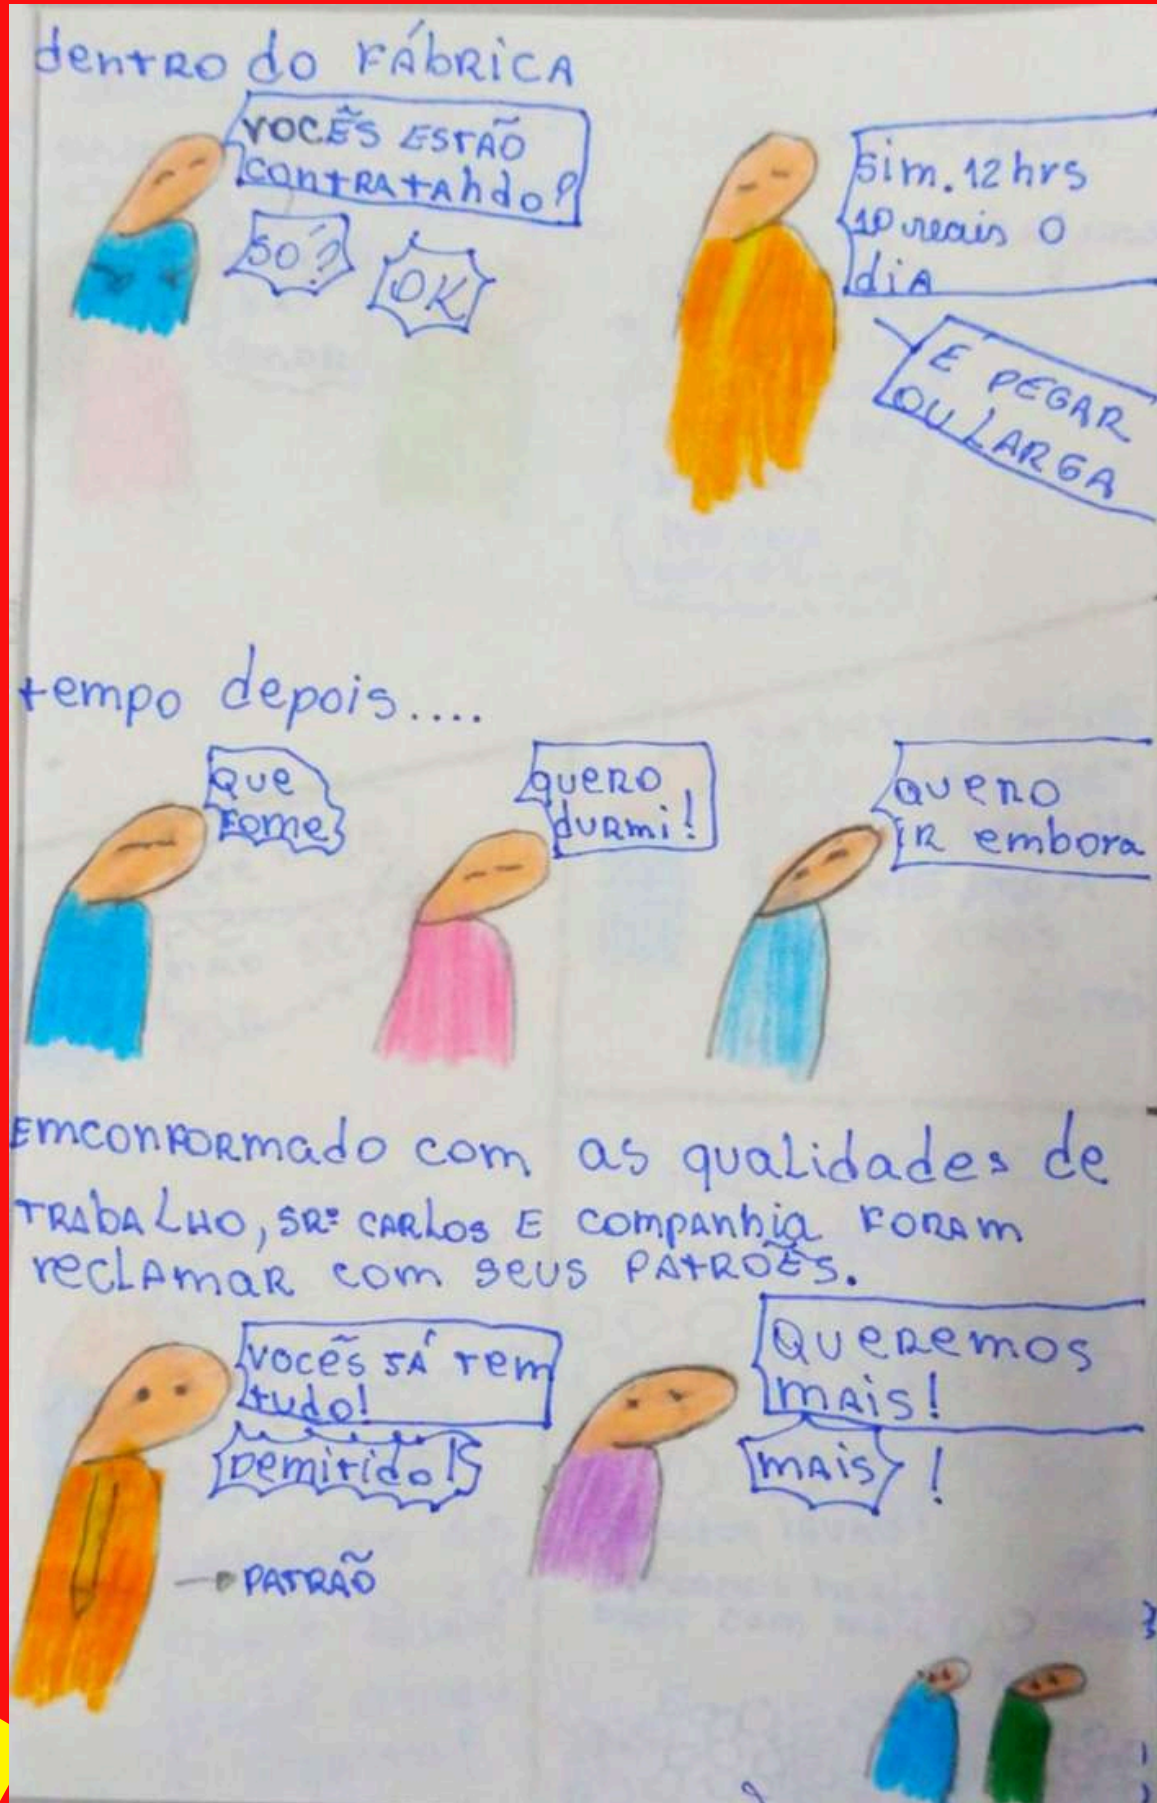 dentro do FÁbRiCA
VOCÊS ESTÃO
contRAtAndo?
SÓ?
OK
Sim. 12 hrs
10 reais O
diA
E PEGAR
OU LARGA
tempo depois....
Que
Fome
quero
duRmi!
quero
iR embora
EmconFoRmado com as qualidades de
TRAbALHO, SRº CARLOS E companhia FORAM
recLAmaR com seus PATRÕES.
vocês JÁ Tem
tudo!
Demitido!
Queremos
mAis!
mAis!
PATRÃO